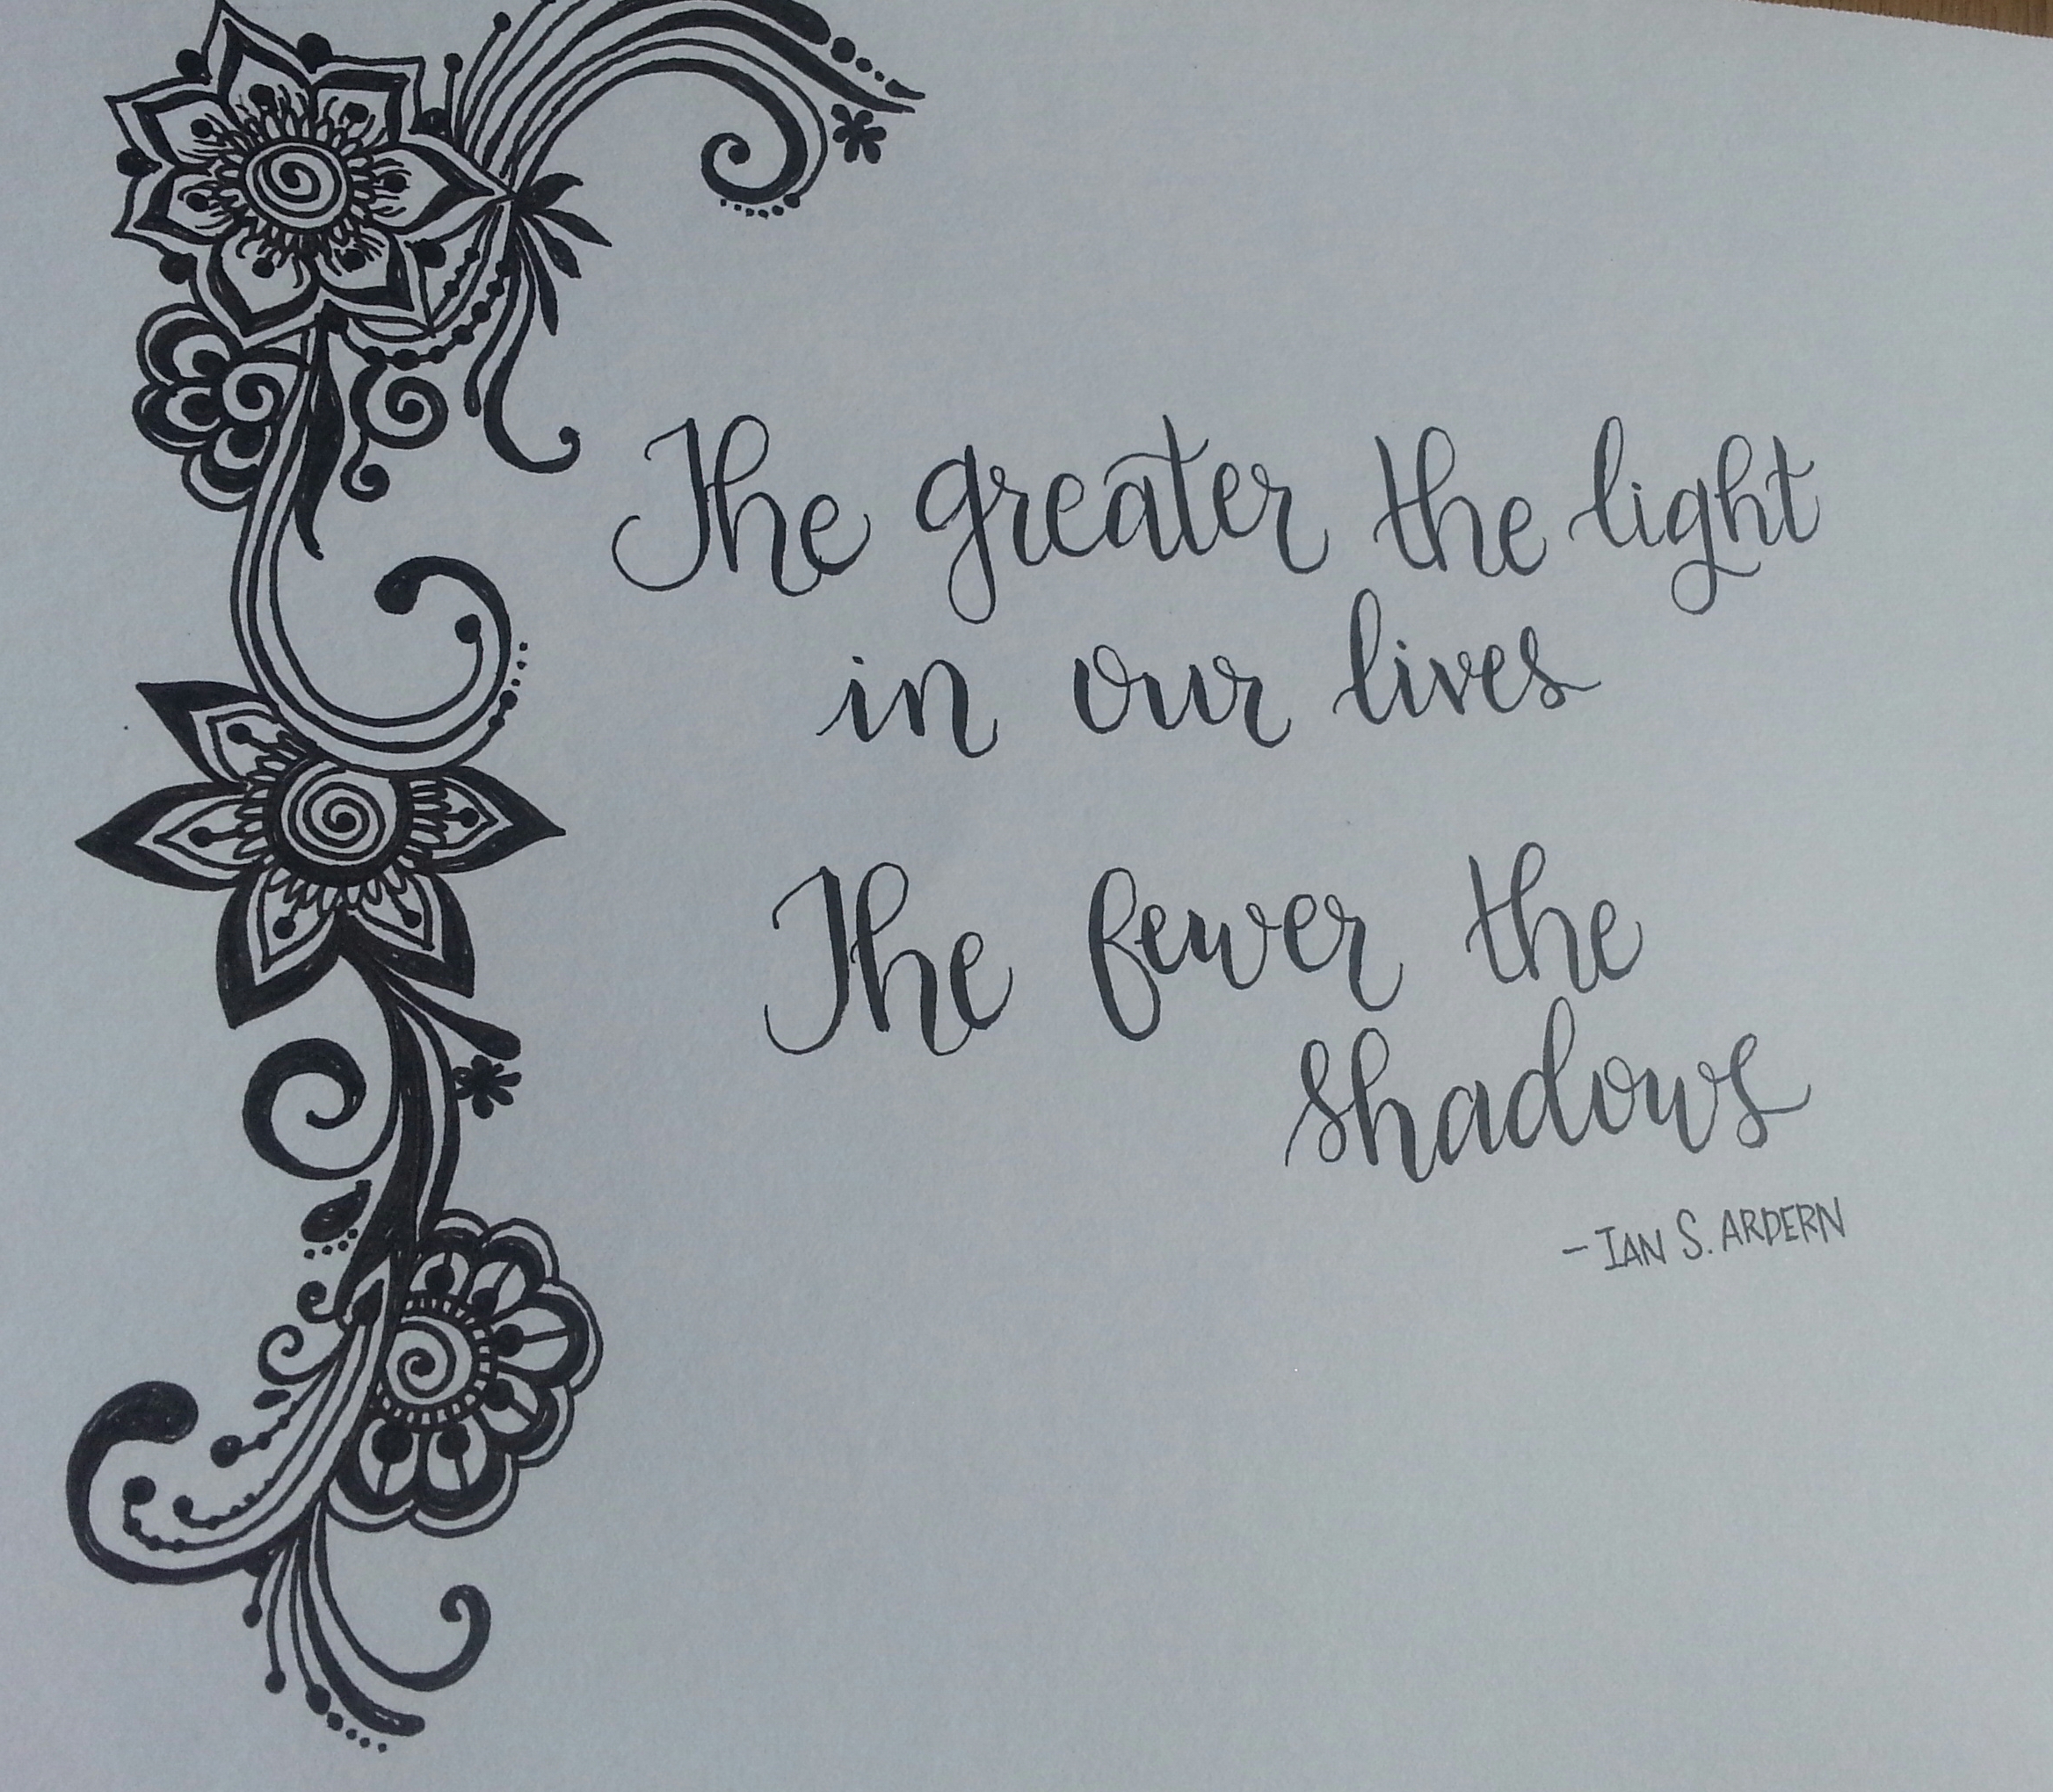 The greater the light
in our lives
The fewer the
shadows
- IAN S. ARDERN